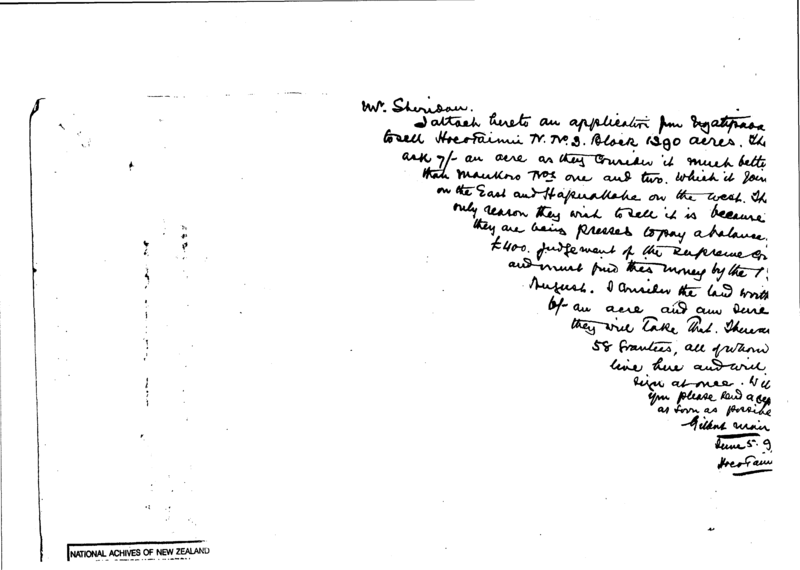 Mr. Sheridan.
I attach hereto an application from Ngatipaoa
to sell Hoe o Tainui N. No. 2. Block 1290 acres. Th
ask 7/- an acre as they consider it much bette
than Maukoro Nos one and two. which it Join
on the East and Hapuakohe on the west. Th
only reason they wish to sell it is because
they are being pressed to pay a balance.
£400. judgement of the Supreme Co
and must find this money by the 1
August. I consider the land worth
6/- an acre and am sure
they will take that. There are
58 Grantees, all of whom
live here and will
sign at once. Will
you please send a
as soon as possible
Gilbert Mair
June 5. 9
Hoe o Tain
NATIONAL ACHIVES OF NEW ZEALAND